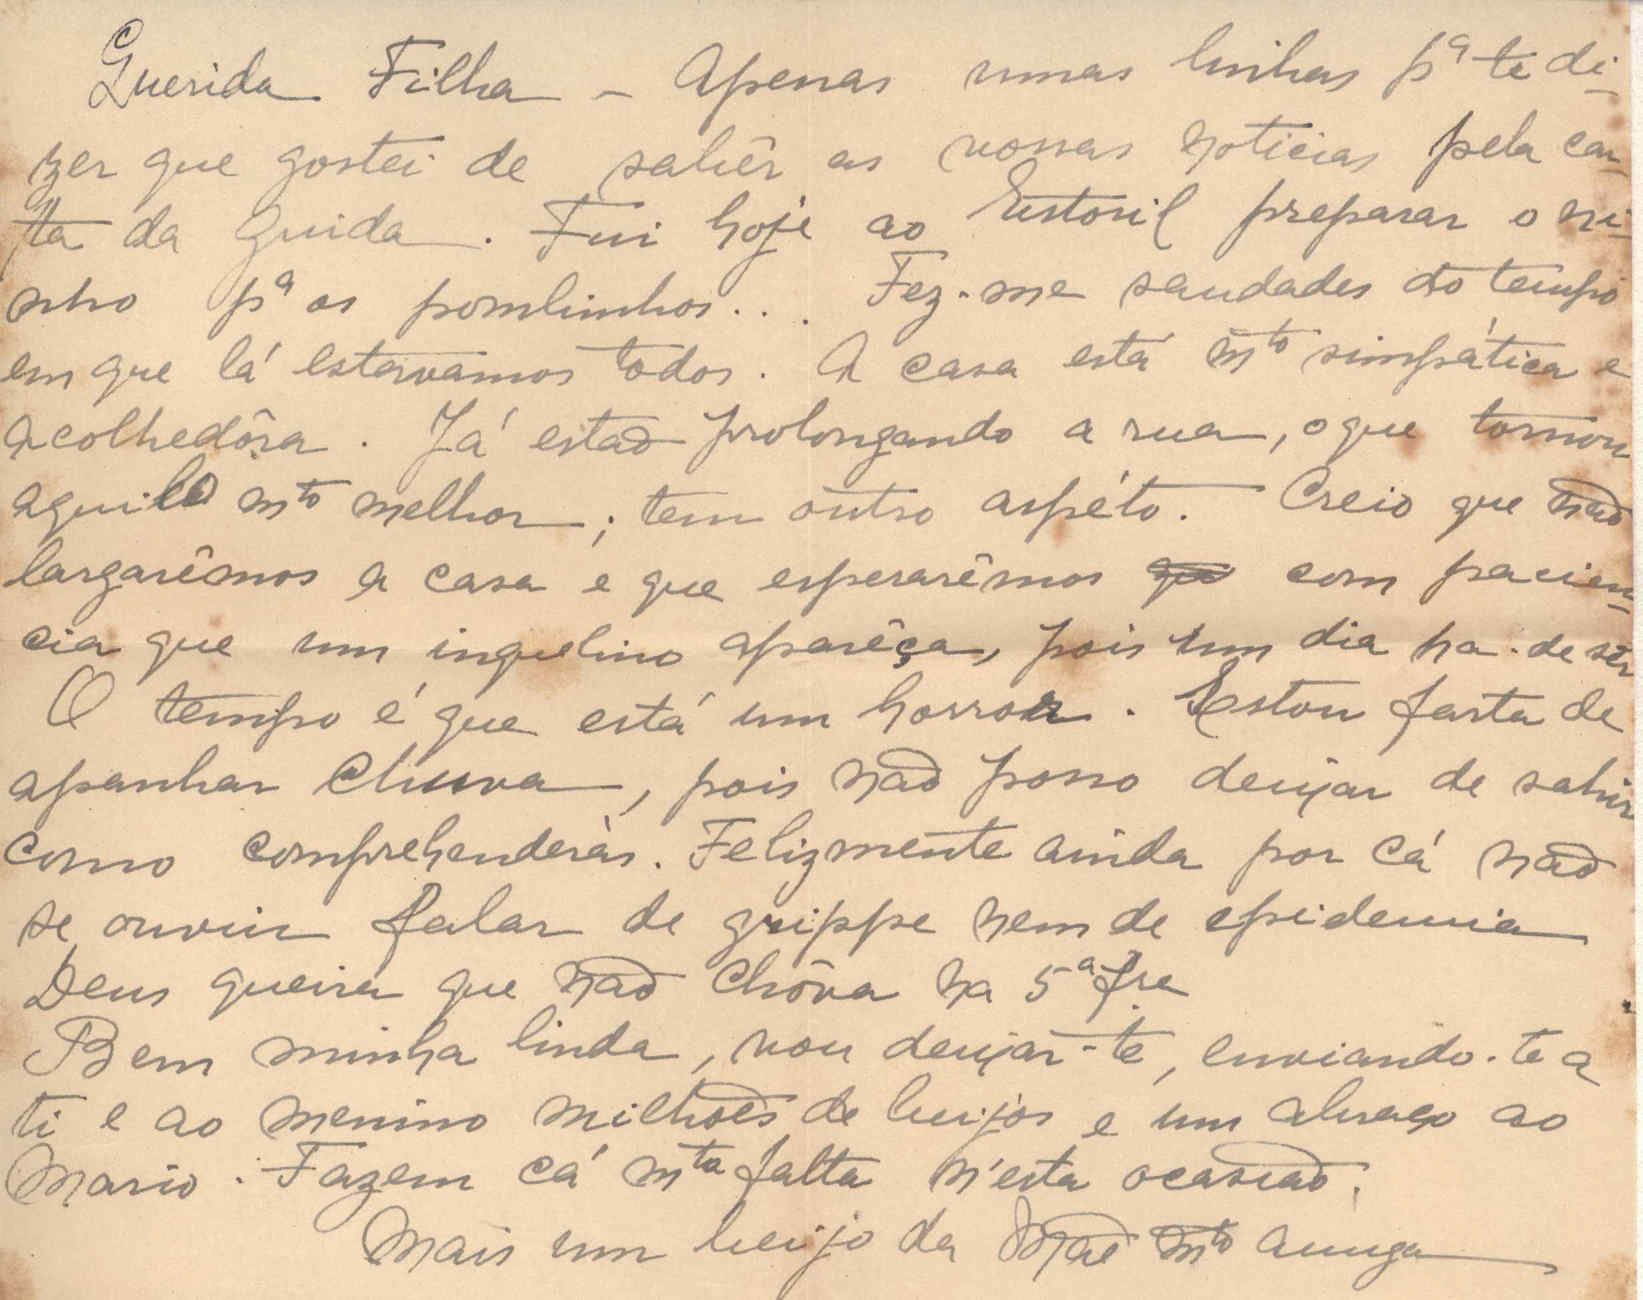 Querida Filha - Apenas umas linhas pª te di-
zer que gostei de sabêr as vossas noticias pela car-
ta da Guida. Fui hoje ao Estoril preparar o ni-
nho pª os pombinhos... Fez-me saudades do tempo
em que lá estavamos todos. A casa está mto simpática e
acolhedôra. Já estão prolongando a rua, o que tornou
aquilo mto melhor; tem outro aspéto. Creio que não
largarêmos a casa e que esperarêmos com pacien-
cia que um inquelino aparêça, pois um dia ha-de sêr
O tempo é que está um horror. Estou farta de
apanhar chuva, pois não posso deixar de sahir
como comprehenderàs. Felizmente ainda por cá não
se ouviu falar de grippe nem de epidemia
Deus queira que não chôva na 5ª fra
Bem minha linda, vou deixar-te, enviando-te a
ti e ao menino milhões de beijos e um abraço ao
Mario. Fazem cá mta falta n'esta ocasião.
Mais um beijo da Mãe mto amiga